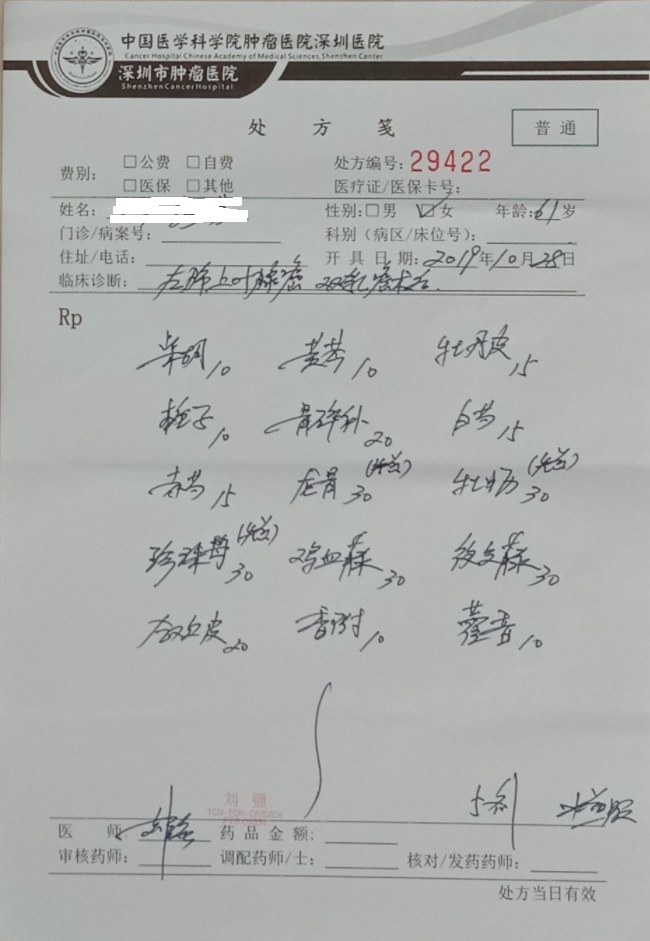 中国医学科学院肿瘤医院深圳医院
Cancer Hospital Chinese Academy of Medical Sciences, Shenzhen Center
深圳市肿瘤医院
Shenzhen Cancer Hospital
处方笺 普通
费别: □公费 □自费 处方编号: 29422
□医保 □其他 医疗证/医保卡号:
姓名: 性别: □男 ☑女 年龄: 61岁
门诊/病案号: 科别(病区/床位号):
住址/电话: 开具日期: 2019年10月28日
临床诊断: 左肺上叶腺癌 双乳癌术后
Rp
柴胡10 黄芩10 牡丹皮15
栀子10 骨碎补20 白芍15
赤芍15 龙骨30(先煎) 牡蛎30(先煎)
珍珠母30(先煎) 鸡血藤30 夜交藤30
合欢皮20 香附10 藿香10
刘强
医师: 药品金额:
审核药师: 调配药师/士: 核对/发药药师:
处方当日有效